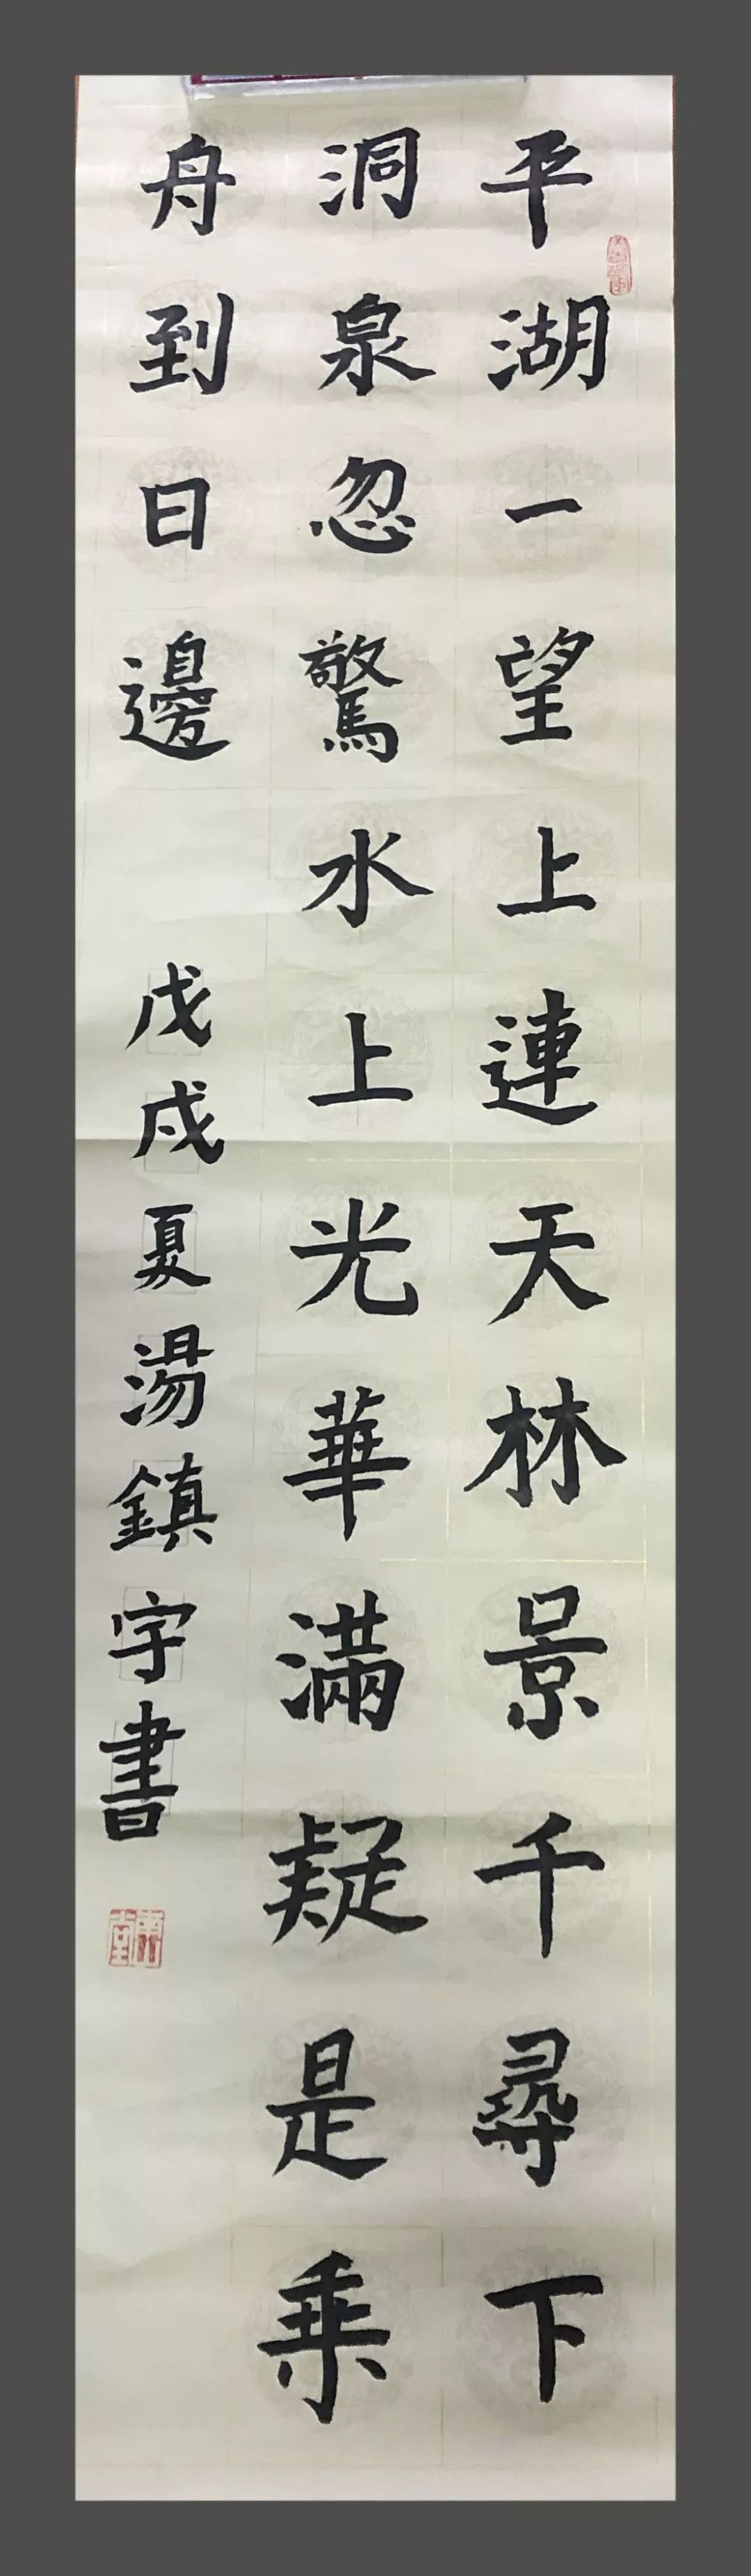 平湖一望上連天林景千尋下
洞泉忽驚水上光華滿疑是乘
舟到日邊 戊戌夏湯鎮宇書